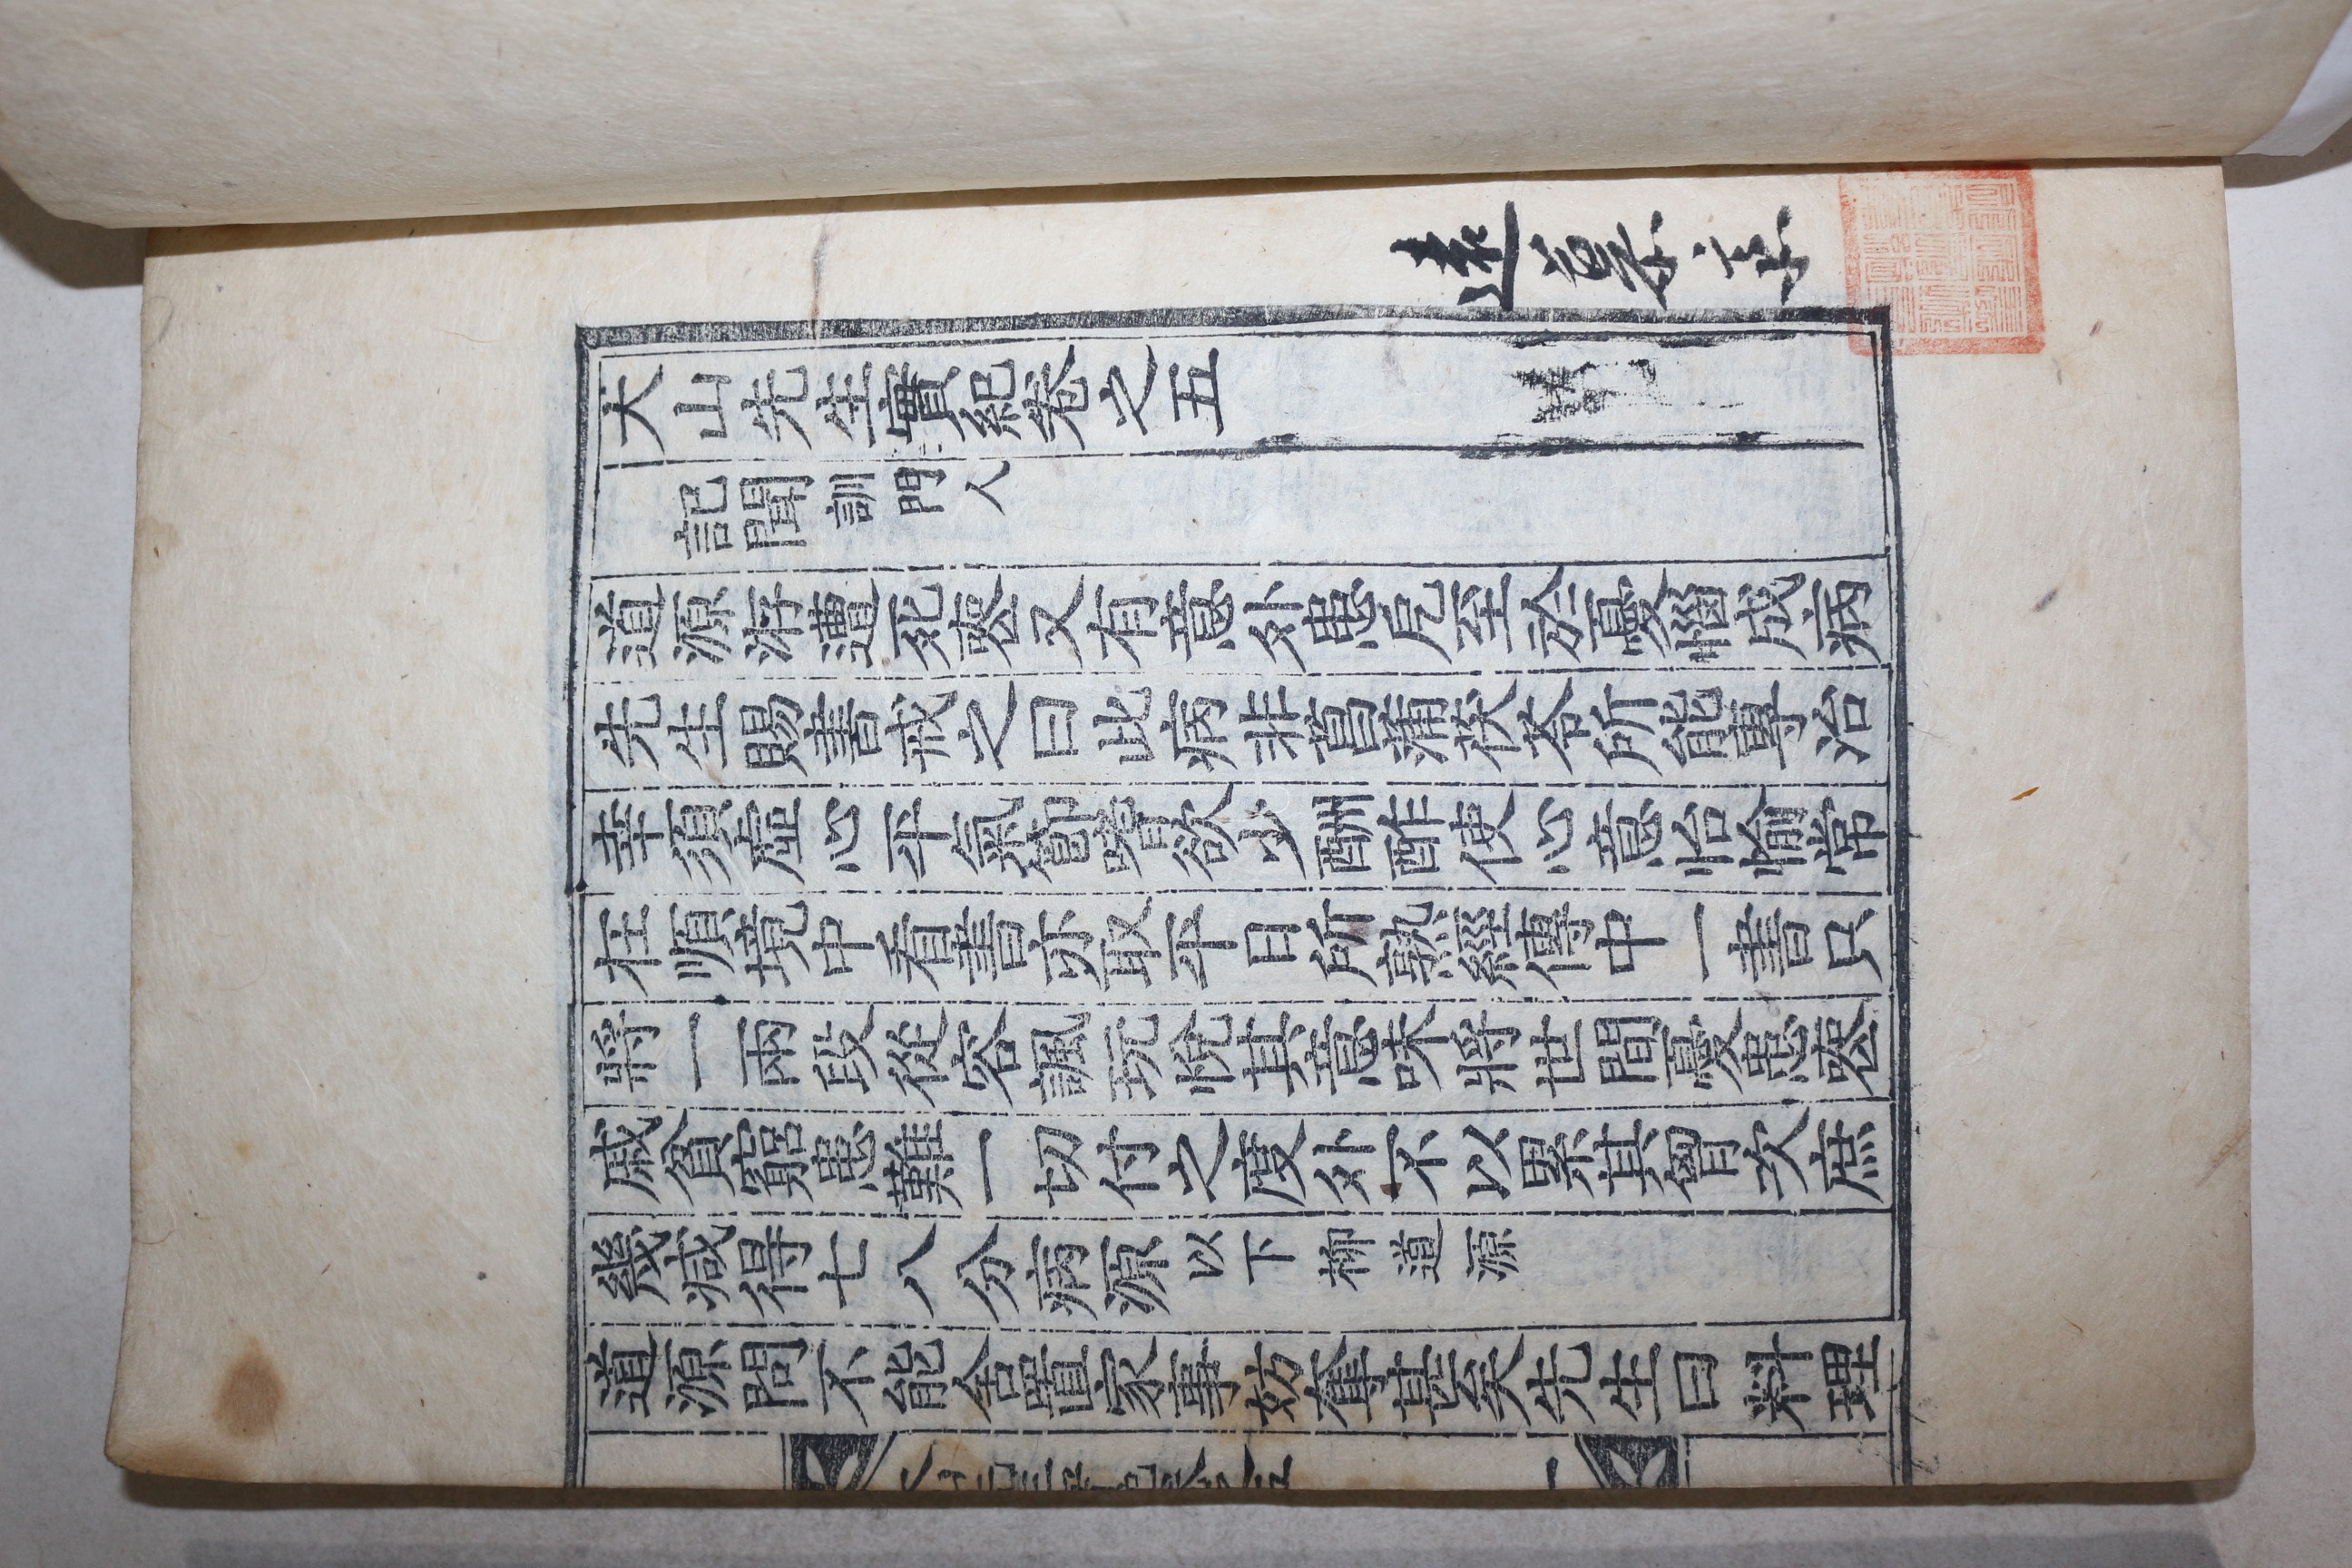 大山先生實紀卷之五
記聞 訓門人
道源洊遭死喪又有意外患咎至於憂惱成病
先生賜書戒之曰此病非菖蒲茯苓所能專治
幸須虛心平氣節嗜欲少酬酢使心意怡愉常
在順境中看書亦取平日所熟經傳中一書只
將一兩段從容諷玩悅其意味將世間憂患喪
戚貧窮患難一切付之度外不以累其胷次庶
幾減得七八分病源 以下柳道源
道源問不能舍置家事妨奪甚矣先生曰料理